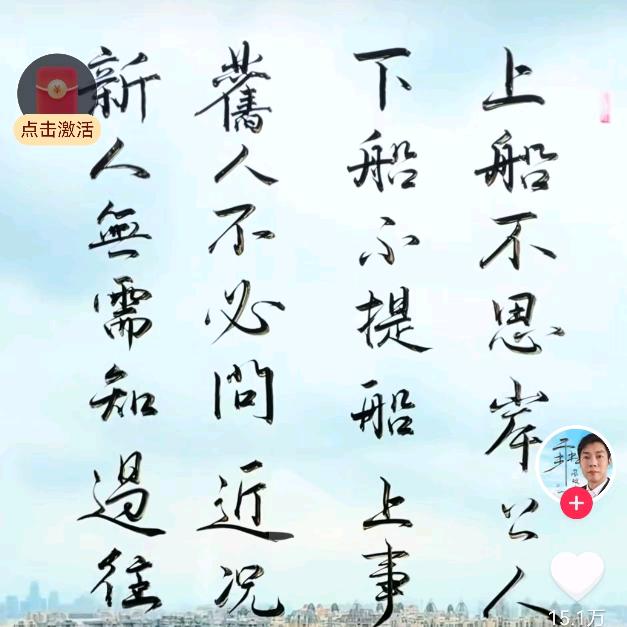 上船不思岸上人
下船不提船上事
舊人不必問近况
新人無需知過往
点击激活
15.1万